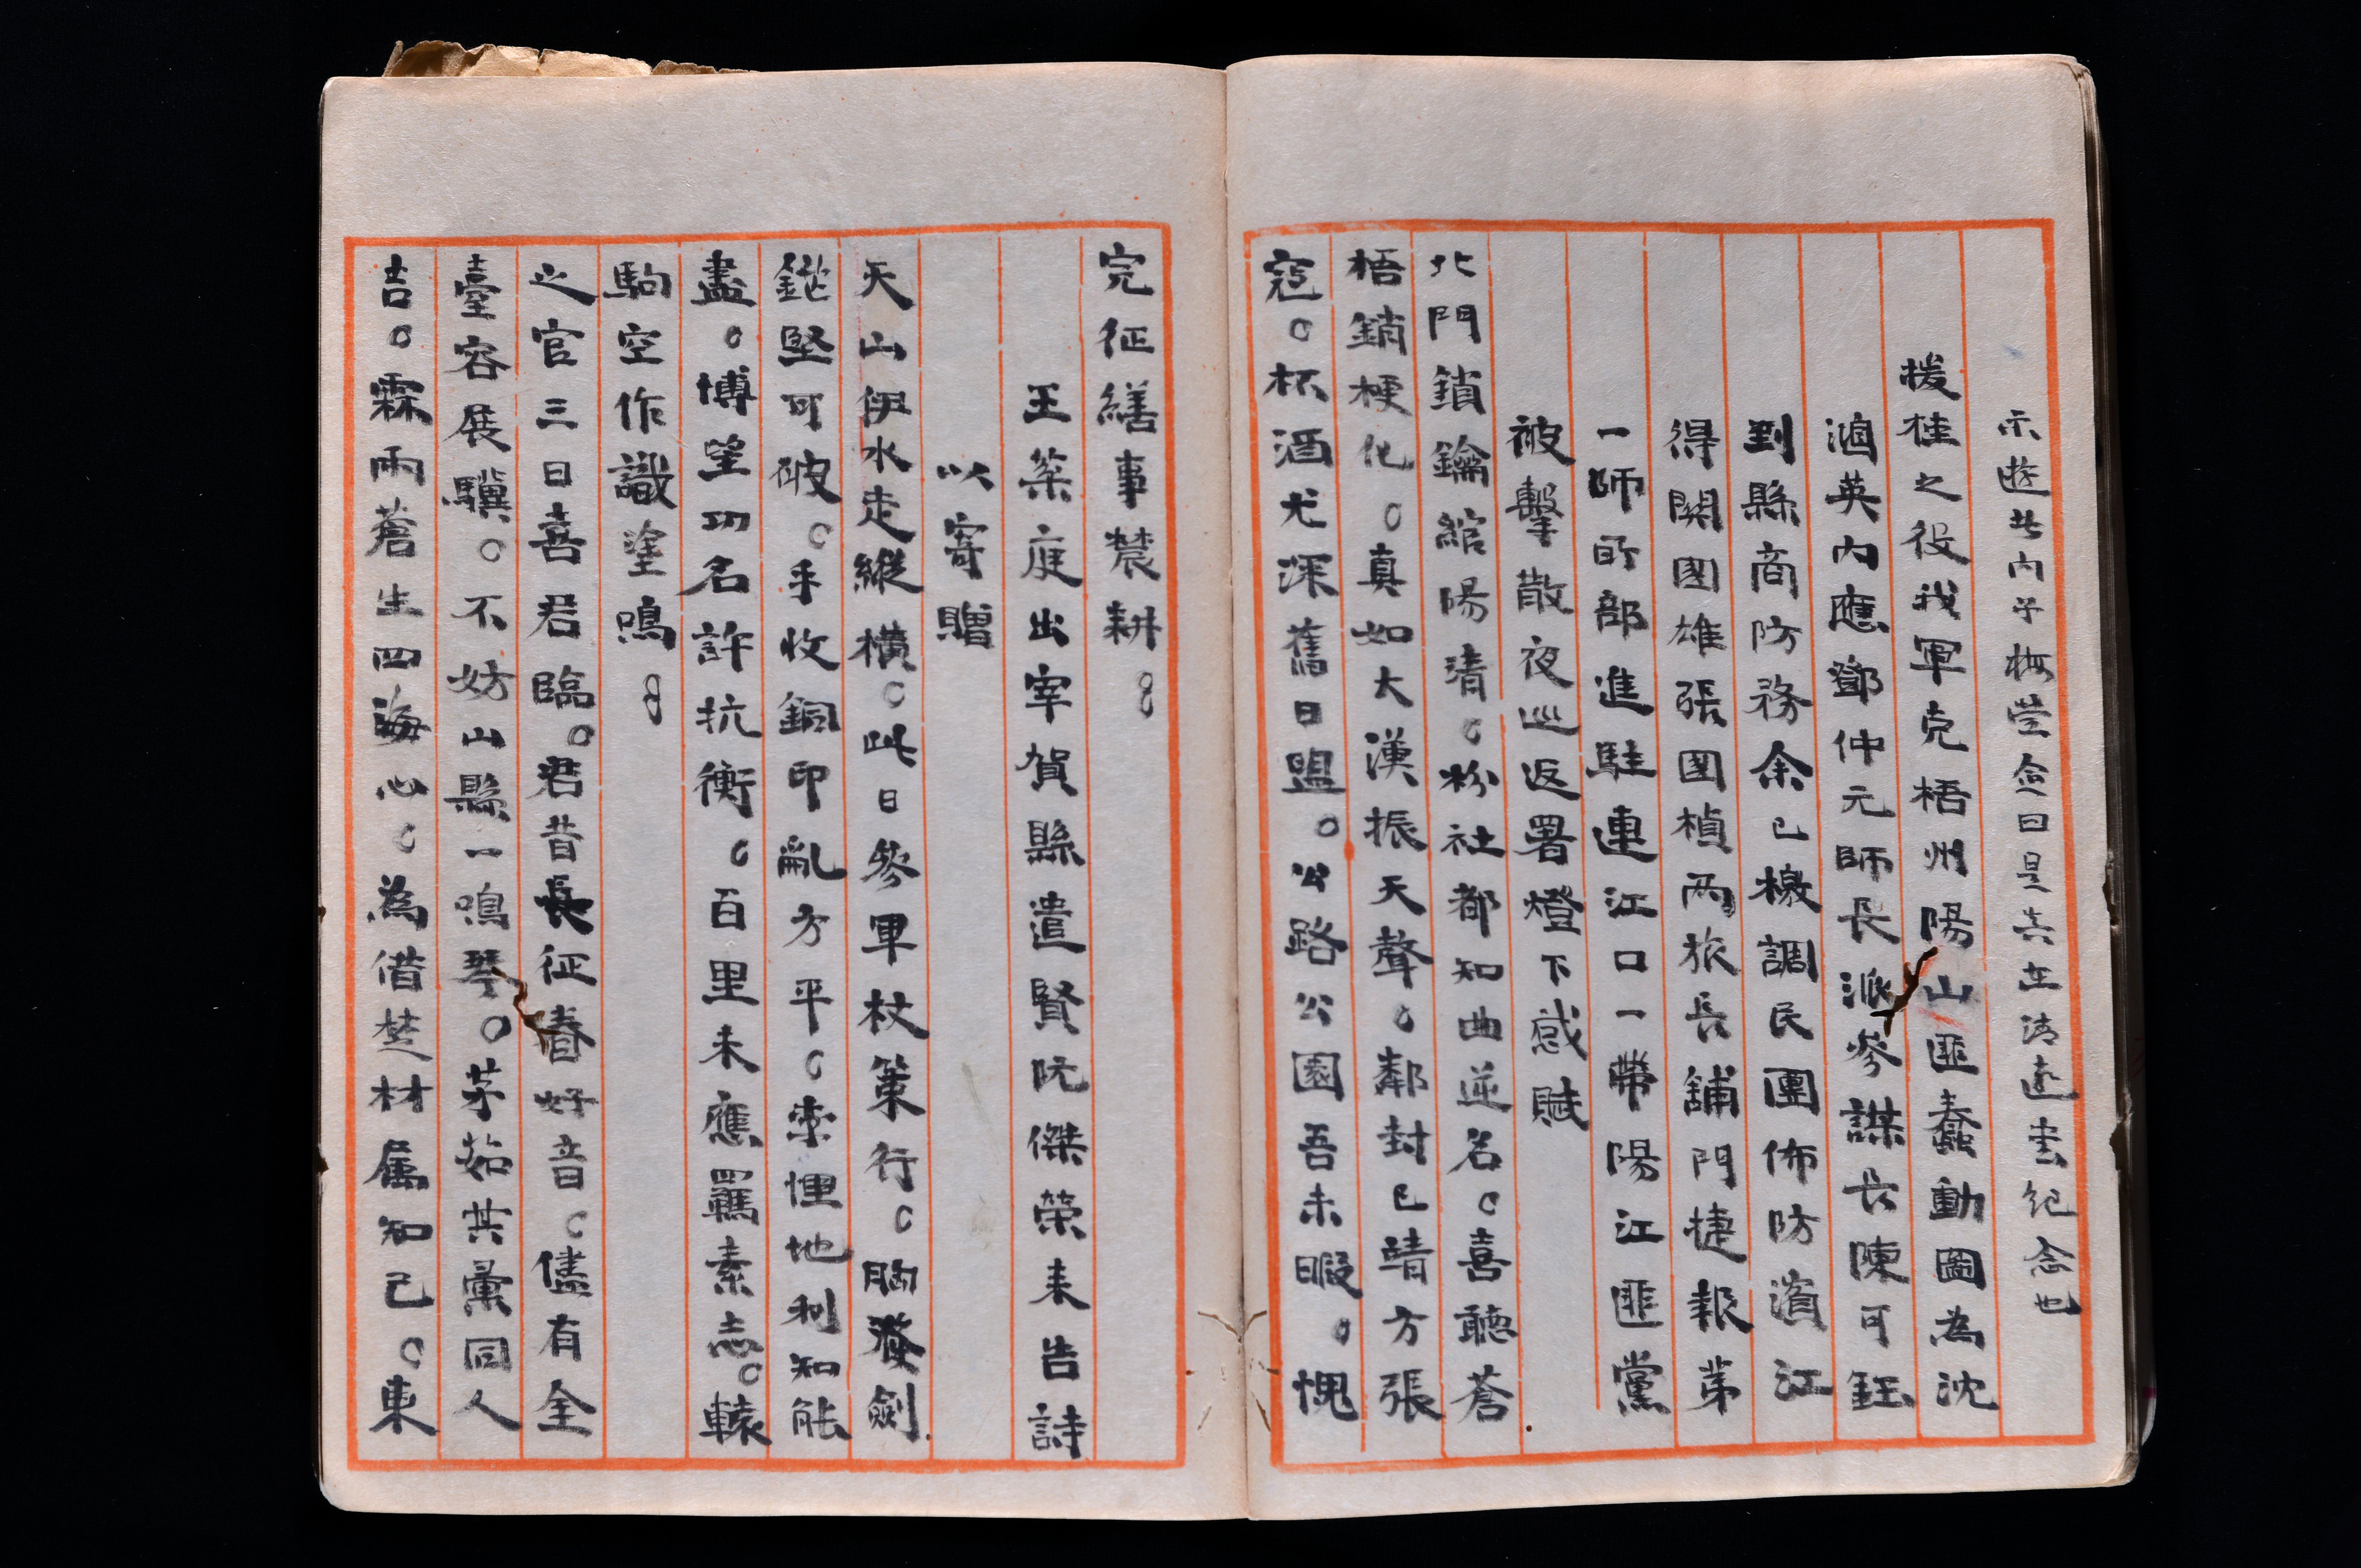 示遊其內子梅瑩僉曰是吉在清遠書紀念也
援桂之役我軍克梧州陽山匪蠢動圖為沈
鴻英內應鄧仲元師長派參謀長陳可鈺
到縣商防務余已檄調民團佈防濱江
得關國雄張國楨兩旅長鋪門捷報第
一師所部進駐連江口一帶陽江匪黨
被擊散夜巡返署燈下感賦
北門鎖鑰綰陽清。枌社都知曲逆名。喜聽蒼
梧銷梗化。真如大漢振天聲。鄰封已靖方張
寇。杯酒尤深舊日盟。公路公園吾未暇。愧
完征繕事農耕。
王棻庭出宰賀縣遣賢阮傑榮來告詩
以寄贈
天山伊水走縱橫。此日參軍杖策行。胸發劍
鋩堅可破。手收銅印亂方平。索悝地利知能
盡。博望功名許抗衡。百里未應羈素志。轅
駒空作識塗鳴。
之官三日喜君臨。君昔長征眷好音。儘有金
臺容展驥。不妨山縣一鳴琴。茅茹共彙同人
吉。霖雨蒼生四海心。為借楚材屬知己。東